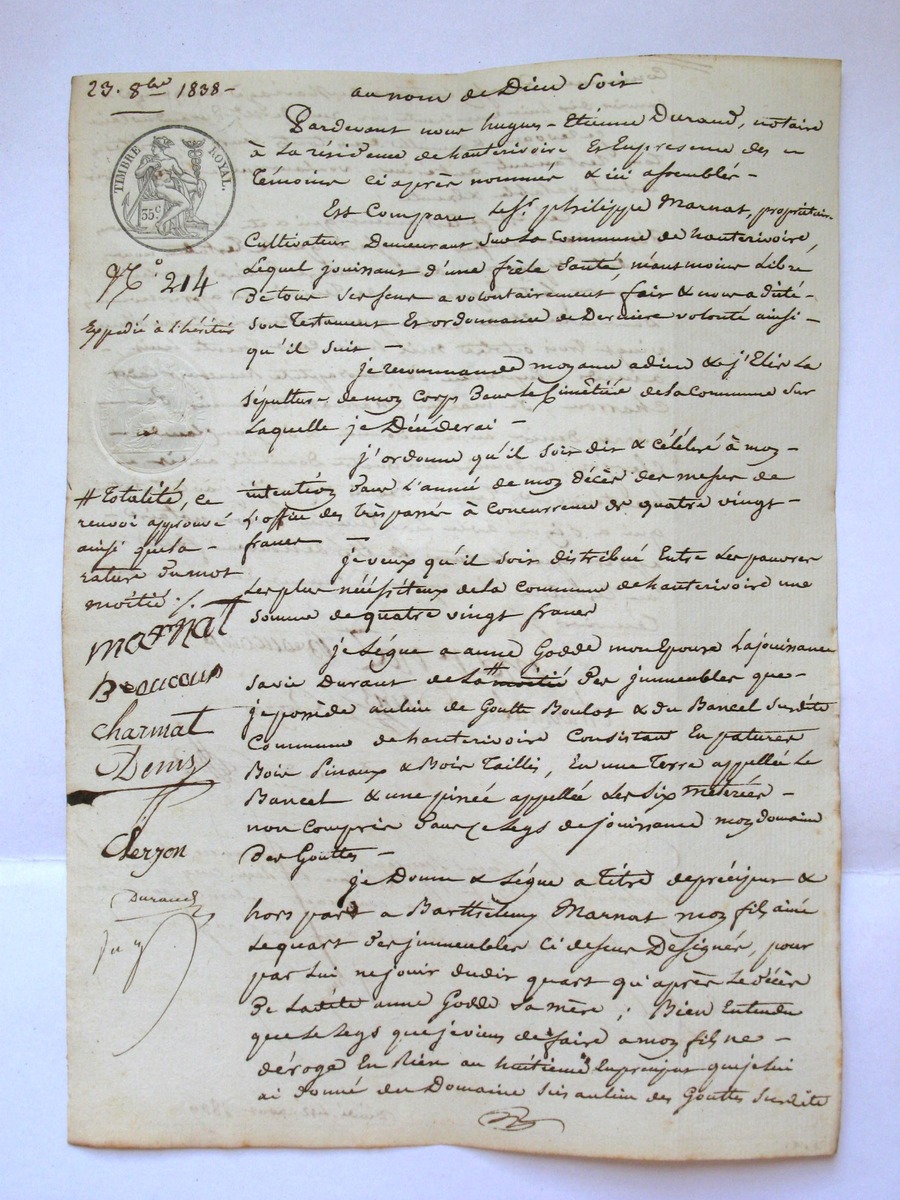 23. 8bre 1838 -
au nom de Dieu soit
Pardevant nous hugues-Etienne Durand, notaire
à La résidence de hauterivoire Et En presence des
Témoins ci après nommés & ici assemblés -
Est Comparu Le Sr. philippe Marnat, propriétaire
Cultivateur Demeurant Sur La Commune de hauterivoire,
Lequel jouissant d'une frêle Santé, néantmoins Libre
De tous Ses sens a volontairement fait & nous a dicté
Son Testament Et ordonnance de Dernière volonté ainsi -
qu'il suit -
je recommande mon ame a dieu & j'Elis La
Sépulture de moy Corps Dans Le Cimêtière de la Commune Sur
Laquelle je Décéderai -
j'ordonne qu'il soit dit & célébré à moy -
intention Dans L'année de moy décès des messes de
L'office des Trépassés à Concurrence de quatre vingt -
francs -
je veux qu'il soit distribué Entre Les pauvres
Les plus nécessiteux de la Commune de hauterivoire une
Somme de quatre vingt francs
je Légue a anne Godde mon Epouse La jouissance
Sa vie Durant de La # moitié Des jmmeubles que
je possède au lieu de Goutte Boulot & du Bancel Susdite
Commune de hauterivoire Consistant En patures
Bois Pinaux & Bois Taillis, En une Terre appellée Le
Bancel & une pinée appellée Les Six métérées -
non Compris Dans Ce Legs de jouissance moy domaine
Des Gouttes -
je Donne & Légue a Titre de préciput &
hors part a Barthélemy Marnat moy fils ainé
Le quart Des jmmeubles Ci dessus Designés, pour
par Lui ne jouir dudit quart qu'après Le Décès
De Ladite anne Godde Sa mère ; Bien Entendu
que Le Legs que je viens de faire a moy fils ne -
déroge En Rien au huitième En préciput que je lui
ai donné du Domaine Sis au lieu des Gouttes Susdite
TIMBRE ROYAL.
35c
No. 214
Expédié à l'héritier
# totalité, ce
renvoi approuvé
ainsi que la -
rature Du mot
moitié ./.
marnat
Beaucoup
Charmat
Denis
Durand